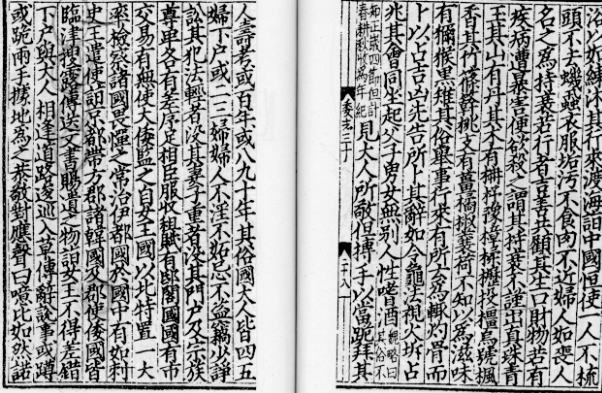 浴以如練沐其行來渡海詣中國恒使一人不梳
頭不去蟣蝨衣服垢污不食肉不近婦人如喪人
名之爲持衰若行者吉善共顧其生口財物若有
疾病遭暴害便欲殺之謂其持衰不謹出真珠青
玉其山有丹其木有柟杼豫樟楺櫪投橿烏號楓
香其竹篠簳桃支有薑橘椒蘘荷不知以爲滋味
有獮猴黑雉其俗舉事行來有所云爲輒灼骨而
卜以占吉凶先告所卜其辭如令龜法視火坼占
兆其會同坐起父子男女無別人性嗜酒魏略曰其俗不
知正歲四節但計春耕秋收爲年紀見大人所敬但搏手以當跪拜其
志三十
二十八
人壽考或百年或八九十年其俗國大人皆四五
婦下戶或二三婦婦人不淫不妬忌不盜竊少諍
訟其犯法輕者沒其妻子重者沒其門戶及宗族
尊卑各有差序足相臣服收租賦有邸閣國國有市
交易有無使大倭監之自女王國以北特置一大
率檢察諸國畏憚之常治伊都國於國中有如刺
史王遣使詣京都帶方郡諸韓國及郡使倭國皆
臨津搜露傳送文書賜遺之物詣女王不得差錯
下戶與大人相逢道路逡巡入草傳辭說事或蹲
或跪兩手據地爲之恭敬對應聲曰噫比如然諾